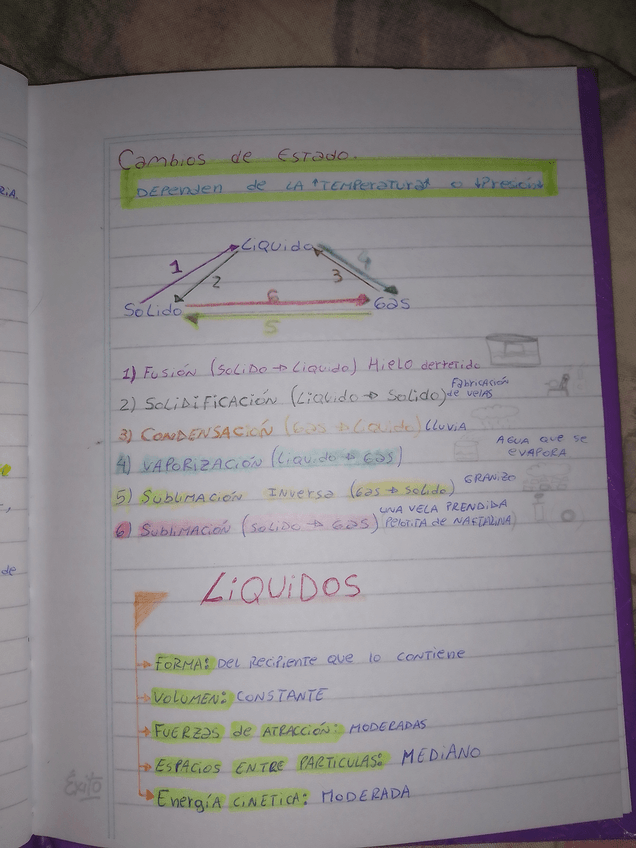 RiA.
e
,
de
Cambios de Estado.
DEPenden de LA "TEMPeratura" o
1
LiQUido
2
3
4
Solido
6
Gas
5
1) Fusión (SoLiDo → Liquido) Hielo derretido
2) SoLiDiFicación (Liquido → Solido) Fabricación
de velas
3) CONDENSACIÓN (Gas → Liquido) LLuvia
4) VAPORIZACIÓN (Liquido → Gas)
AGUA QUE SE
EVAPORA
5) SubLiMACIÓN Inversa (Gas → Solido) GRANIZO
6) SubLiMACIÓN (SoLiDo → GAS) UNA VELA PRENDIDA
PELOTITA de NAFTALINA
LíQUiDOS
FORMA: Del Recipiente que lo contiene
VOLUMEN: CONSTANTE
FUERZas de ATRACCIÓN: MODERADAS
ESPACIOS ENTRE PARTICULAS: MEDIANO
Energía CINETICA: MODERADA
Éxito